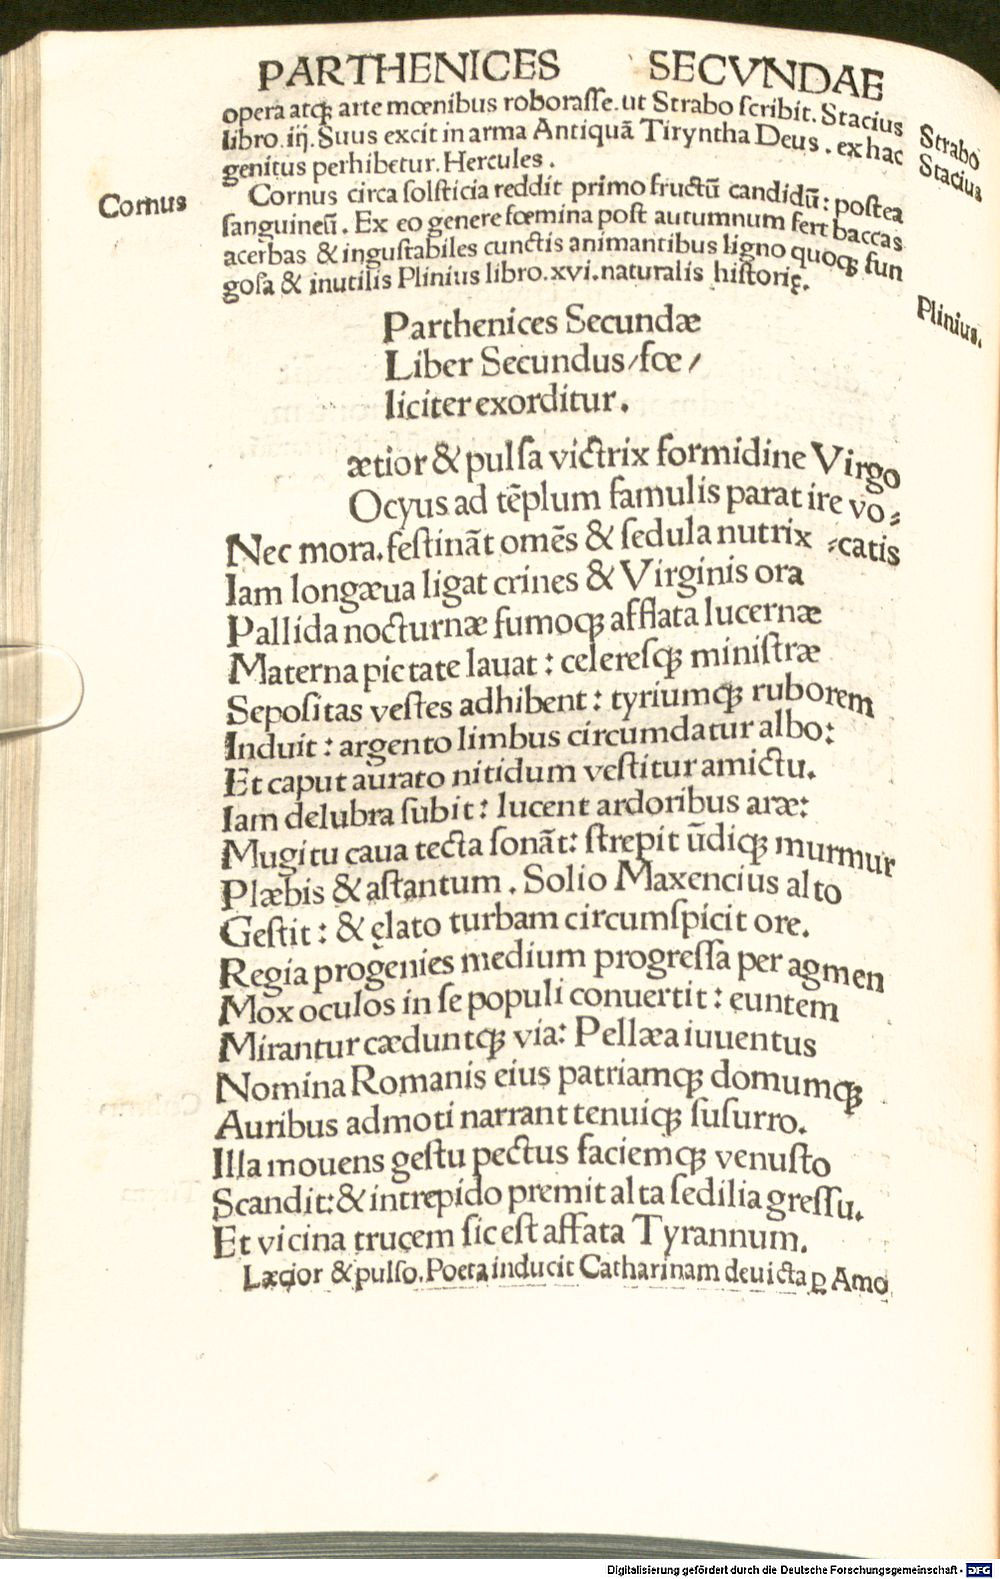 PARTHENICES SECVNDAE
opera atqꝫ arte mœnibus roboraſſe. ut Strabo ſcribit. Stacius
libro.iij. Suus excit in arma Antiquā Tiryntha Deus. ex hac
genitus perhibetur. Hercules.
Strabo
Stacius
Cornus
Cornus circa ſolſticia reddit primo fructū candidū: poſtea
ſanguineū. Ex eo genere fœmina poſt autumnum fert baccas
acerbas & inguſtabiles cunctis animantibus ligno quoqꝫ fun
goſa & inutilis Plinius libro.xvi.naturalis hiſtorię.
Plinius.
Parthenices Secundæ
Liber Secundus/fœ/
liciter exorditur.
ætior & pulſa victrix formidine Virgo
Ocyus ad tēplum famulis parat ire vo⸗
Nec mora. feſtināt omēs & ſedula nutrix ⸗catis
Iam longæua ligat crines & Virginis ora
Pallida nocturnæ fumoqꝫ afflata lucernæ
Materna pietate lauat: celereſqꝫ miniſtræ
Sepoſitas veſtes adhibent: tyriumqꝫ ruborem
Induit: argento limbus circumdatur albo:
Et caput aurato nitidum veſtitur amictu.
Iam delubra ſubit: lucent ardoribus aræ:
Mugitu caua tecta ſonāt: ſtrepit ūdiqꝫ murmur
Plæbis & aſtantum. Solio Maxencius alto
Geſtit: & ęlato turbam circumſpicit ore.
Regia progenies medium progreſſa per agmen
Mox oculos in ſe populi conuertit: euntem
Mirantur cæduntqꝫ via: Pellæa iuuentus
Nomina Romanis eius patriamqꝫ domumqꝫ
Auribus admoti narrant tenuiqꝫ ſuſurro.
Illa mouens geſtu pectus faciemqꝫ venuſto
Scandit: & intrepido premit alta ſedilia greſſu.
Et vicina trucem ſic eſt affata Tyrannum.
Lætior & pulſo. Poeta inducit Catharinam deuicta ꝑ Amo
Digitalisierung gefördert durch die Deutsche Forschungsgemeinschaft - DFG